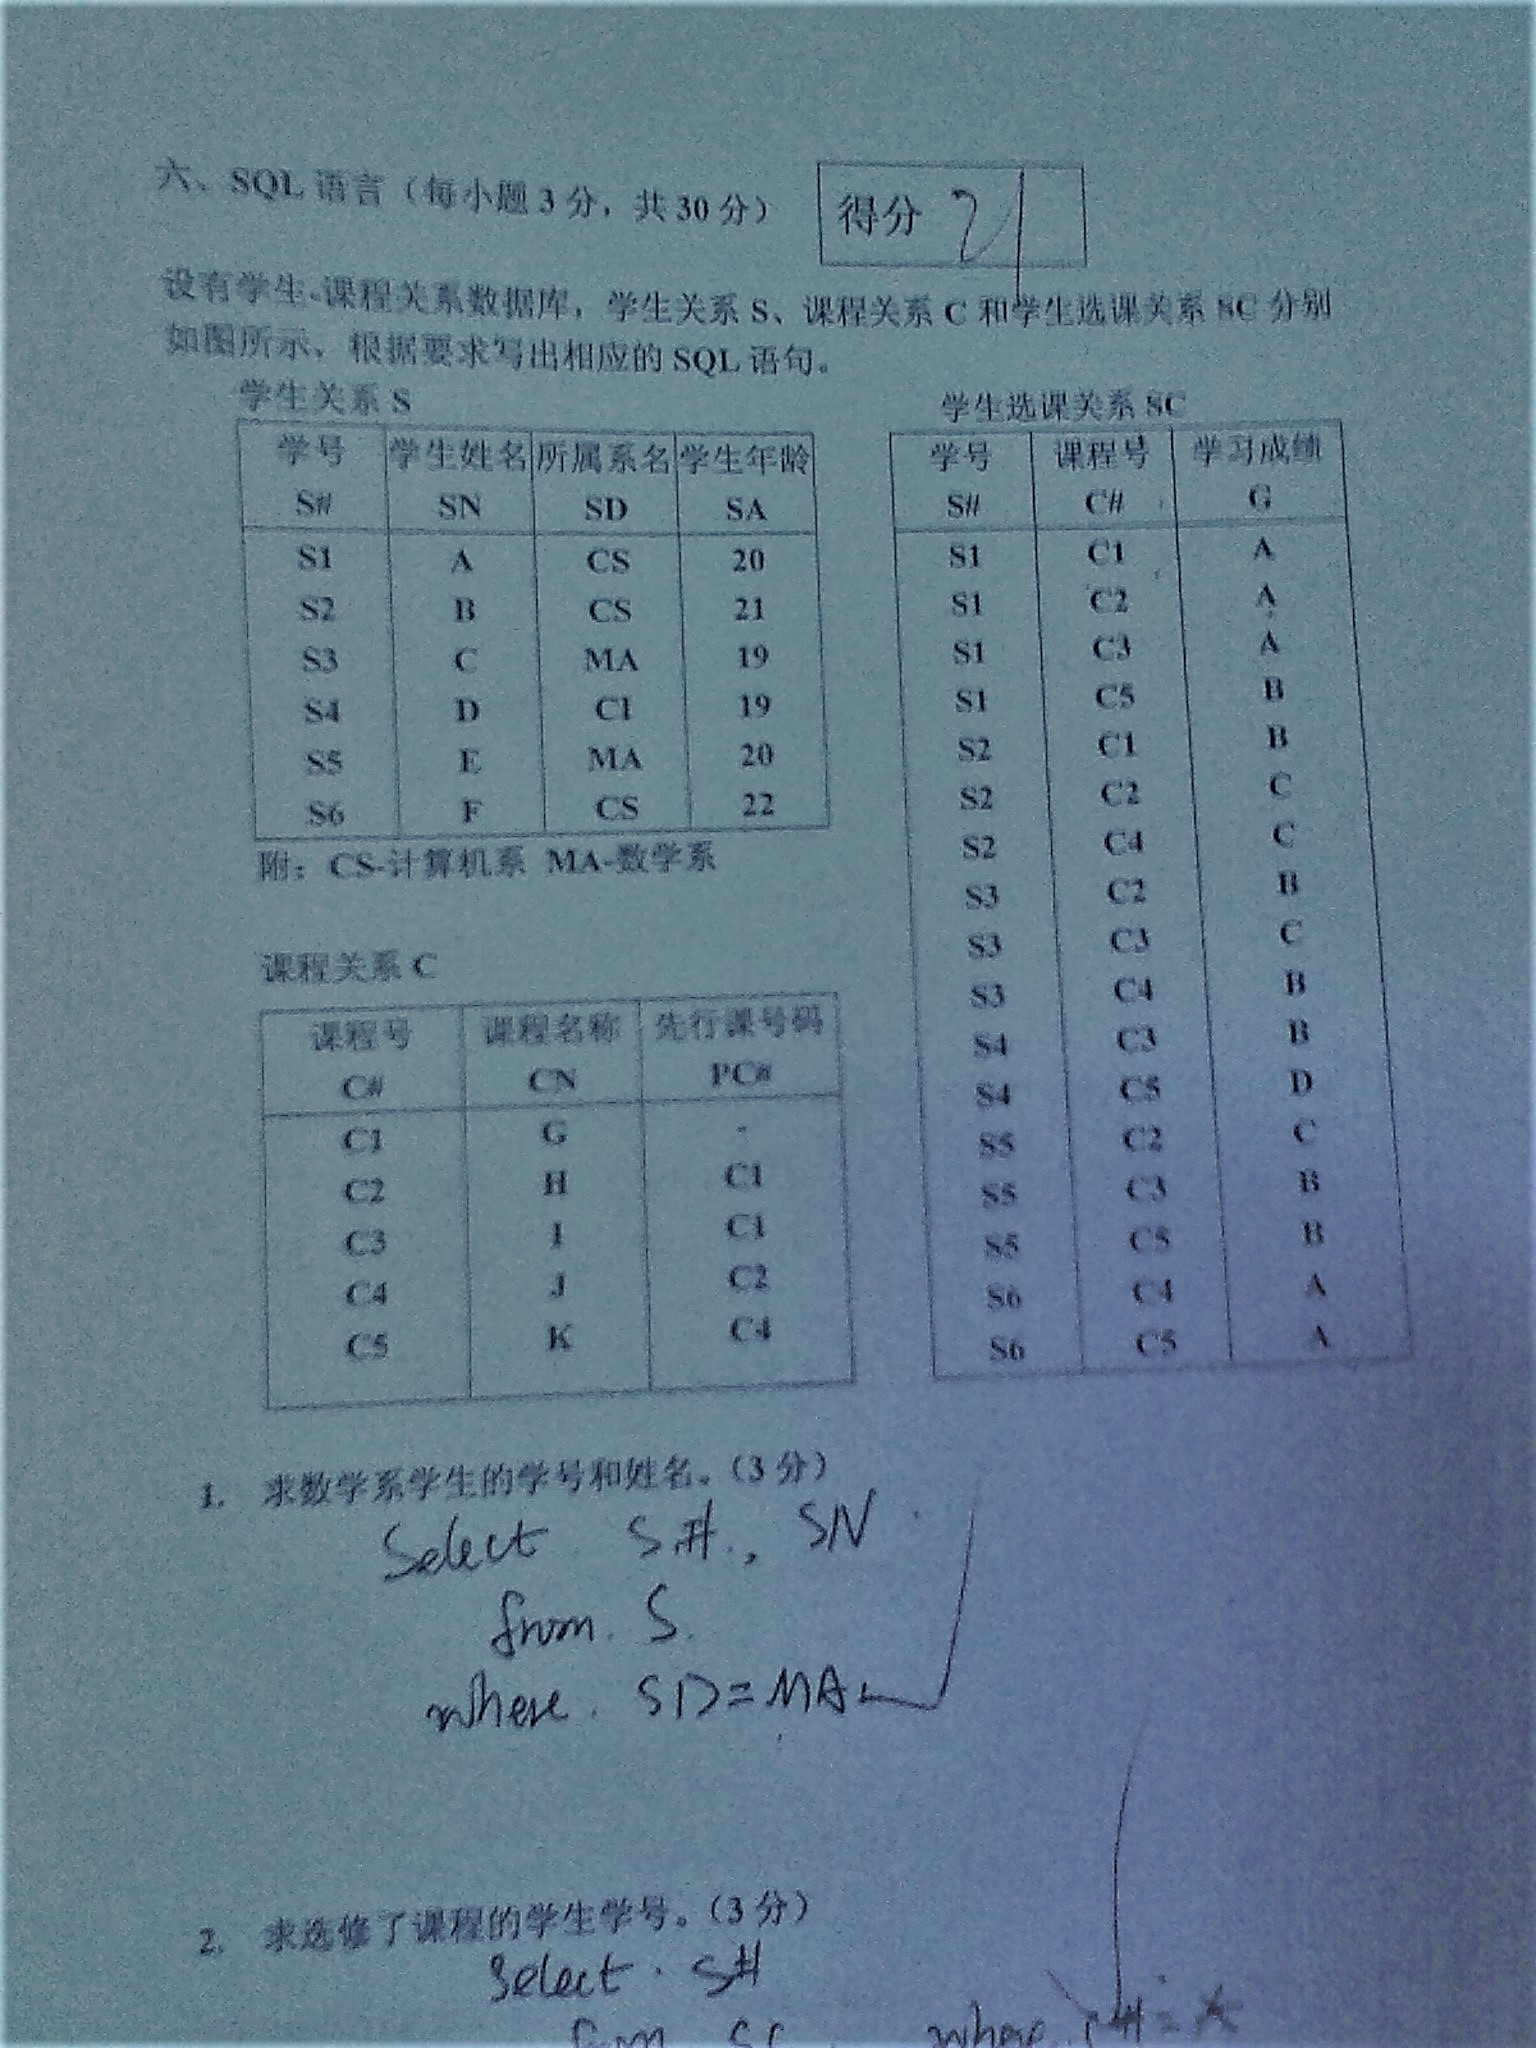 六、SQL 语言（每小题 3 分，共 30 分）
得分 21
设有学生-课程关系数据库，学生关系 S、课程关系 C 和学生选课关系 SC 分别
如图所示，根据要求写出相应的 SQL 语句。
学生关系 S
学号 学生姓名 所属系名 学生年龄
S# SN SD SA
S1 A CS 20
S2 B CS 21
S3 C MA 19
S4 D CI 19
S5 E MA 20
S6 F CS 22
附：CS-计算机系 MA-数学系
课程关系 C
课程号 课程名称 先行课号码
C# CN PC#
C1 G -
C2 H C1
C3 I C1
C4 J C2
C5 K C4
学生选课关系 SC
学号 课程号 学习成绩
S# C# G
S1 C1 A
S1 C2 A
S1 C3 A
S1 C5 B
S2 C1 B
S2 C2 C
S2 C4 C
S3 C2 B
S3 C3 C
S3 C4 B
S4 C3 B
S4 C5 D
S5 C2 C
S5 C3 B
S5 C5 B
S6 C4 A
S6 C5 A
1. 求数学系学生的学号和姓名。（3 分）
Select S#, SN
from S
where SD=MA
2. 求选修了课程的学生学号。（3 分）
Select S#
from SC where C#=